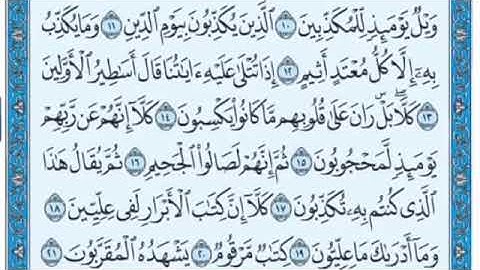 وَيْلٌ يَوْمَئِذٍ لِّلْمُكَذِّبِينَ ١٠ الَّذِينَ يُكَذِّبُونَ بِيَوْمِ الدِّينِ ١١ وَمَا يُكَذِّبُ
بِهِ إِلَّا كُلُّ مُعْتَدٍ أَثِيمٍ ١٢ إِذَا تُتْلَى عَلَيْهِ ءَايَتُنَا قَالَ أَسَطِيرُ الْأَوَّلِينَ
١٣ كَلَّا بَلْ رَانَ عَلَى قُلُوبِهِم مَّا كَانُوا يَكْسِبُونَ ١٤ كَلَّا إِنَّهُمْ عَن رَّبِّهِمْ
يَوْمَئِذٍ لَّمَحْجُوبُونَ ١٥ ثُمَّ إِنَّهُمْ لَصَالُوا الْجَحِيمِ ١٦ ثُمَّ يُقَالُ هَذَا
الَّذِي كُنتُم بِهِ تُكَذِّبُونَ ١٧ كَلَّا إِنَّ كِتَبَ الْأَبْرَارِ لَفِي عِلِّيِّينَ ١٨
وَمَا أَدْرَىكَ مَا عِلِّيُّونَ ١٩ كِتَبٌ مَّرْقُومٌ ٢٠ يَشْهَدُهُ الْمُقَرَّبُونَ ٢١